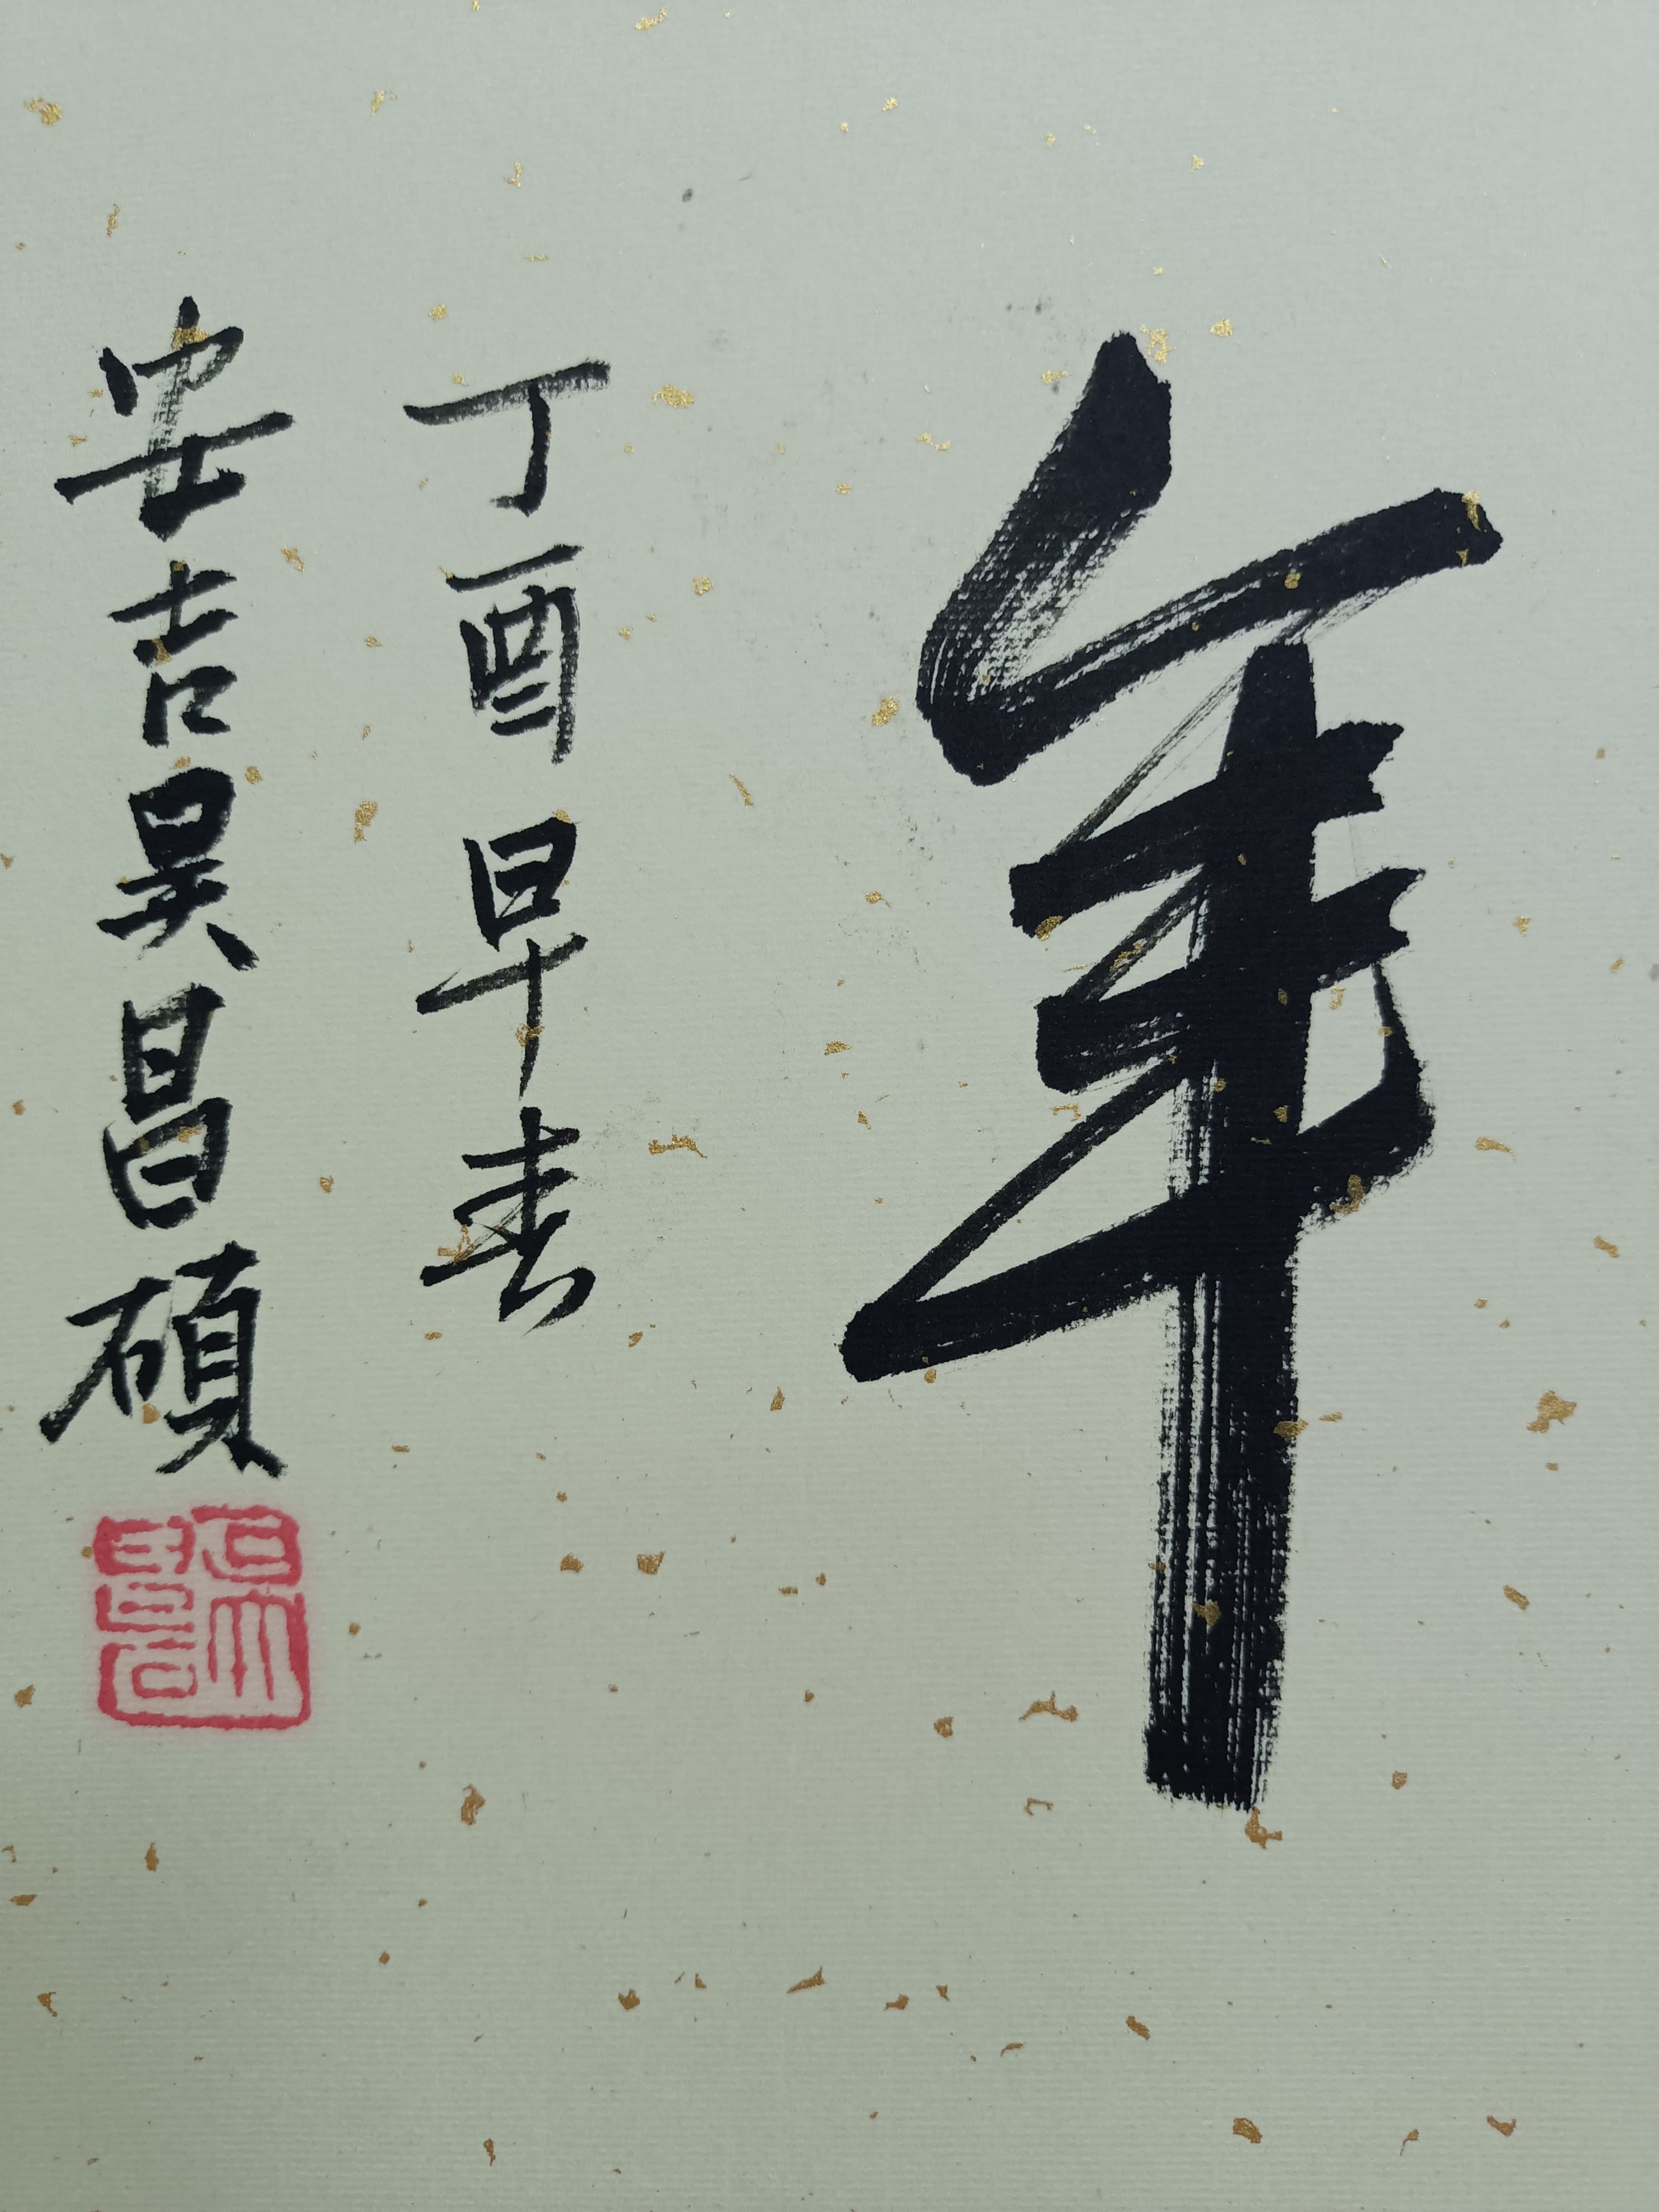 年
丁酉早春
安吉吴昌硕
吴昌石